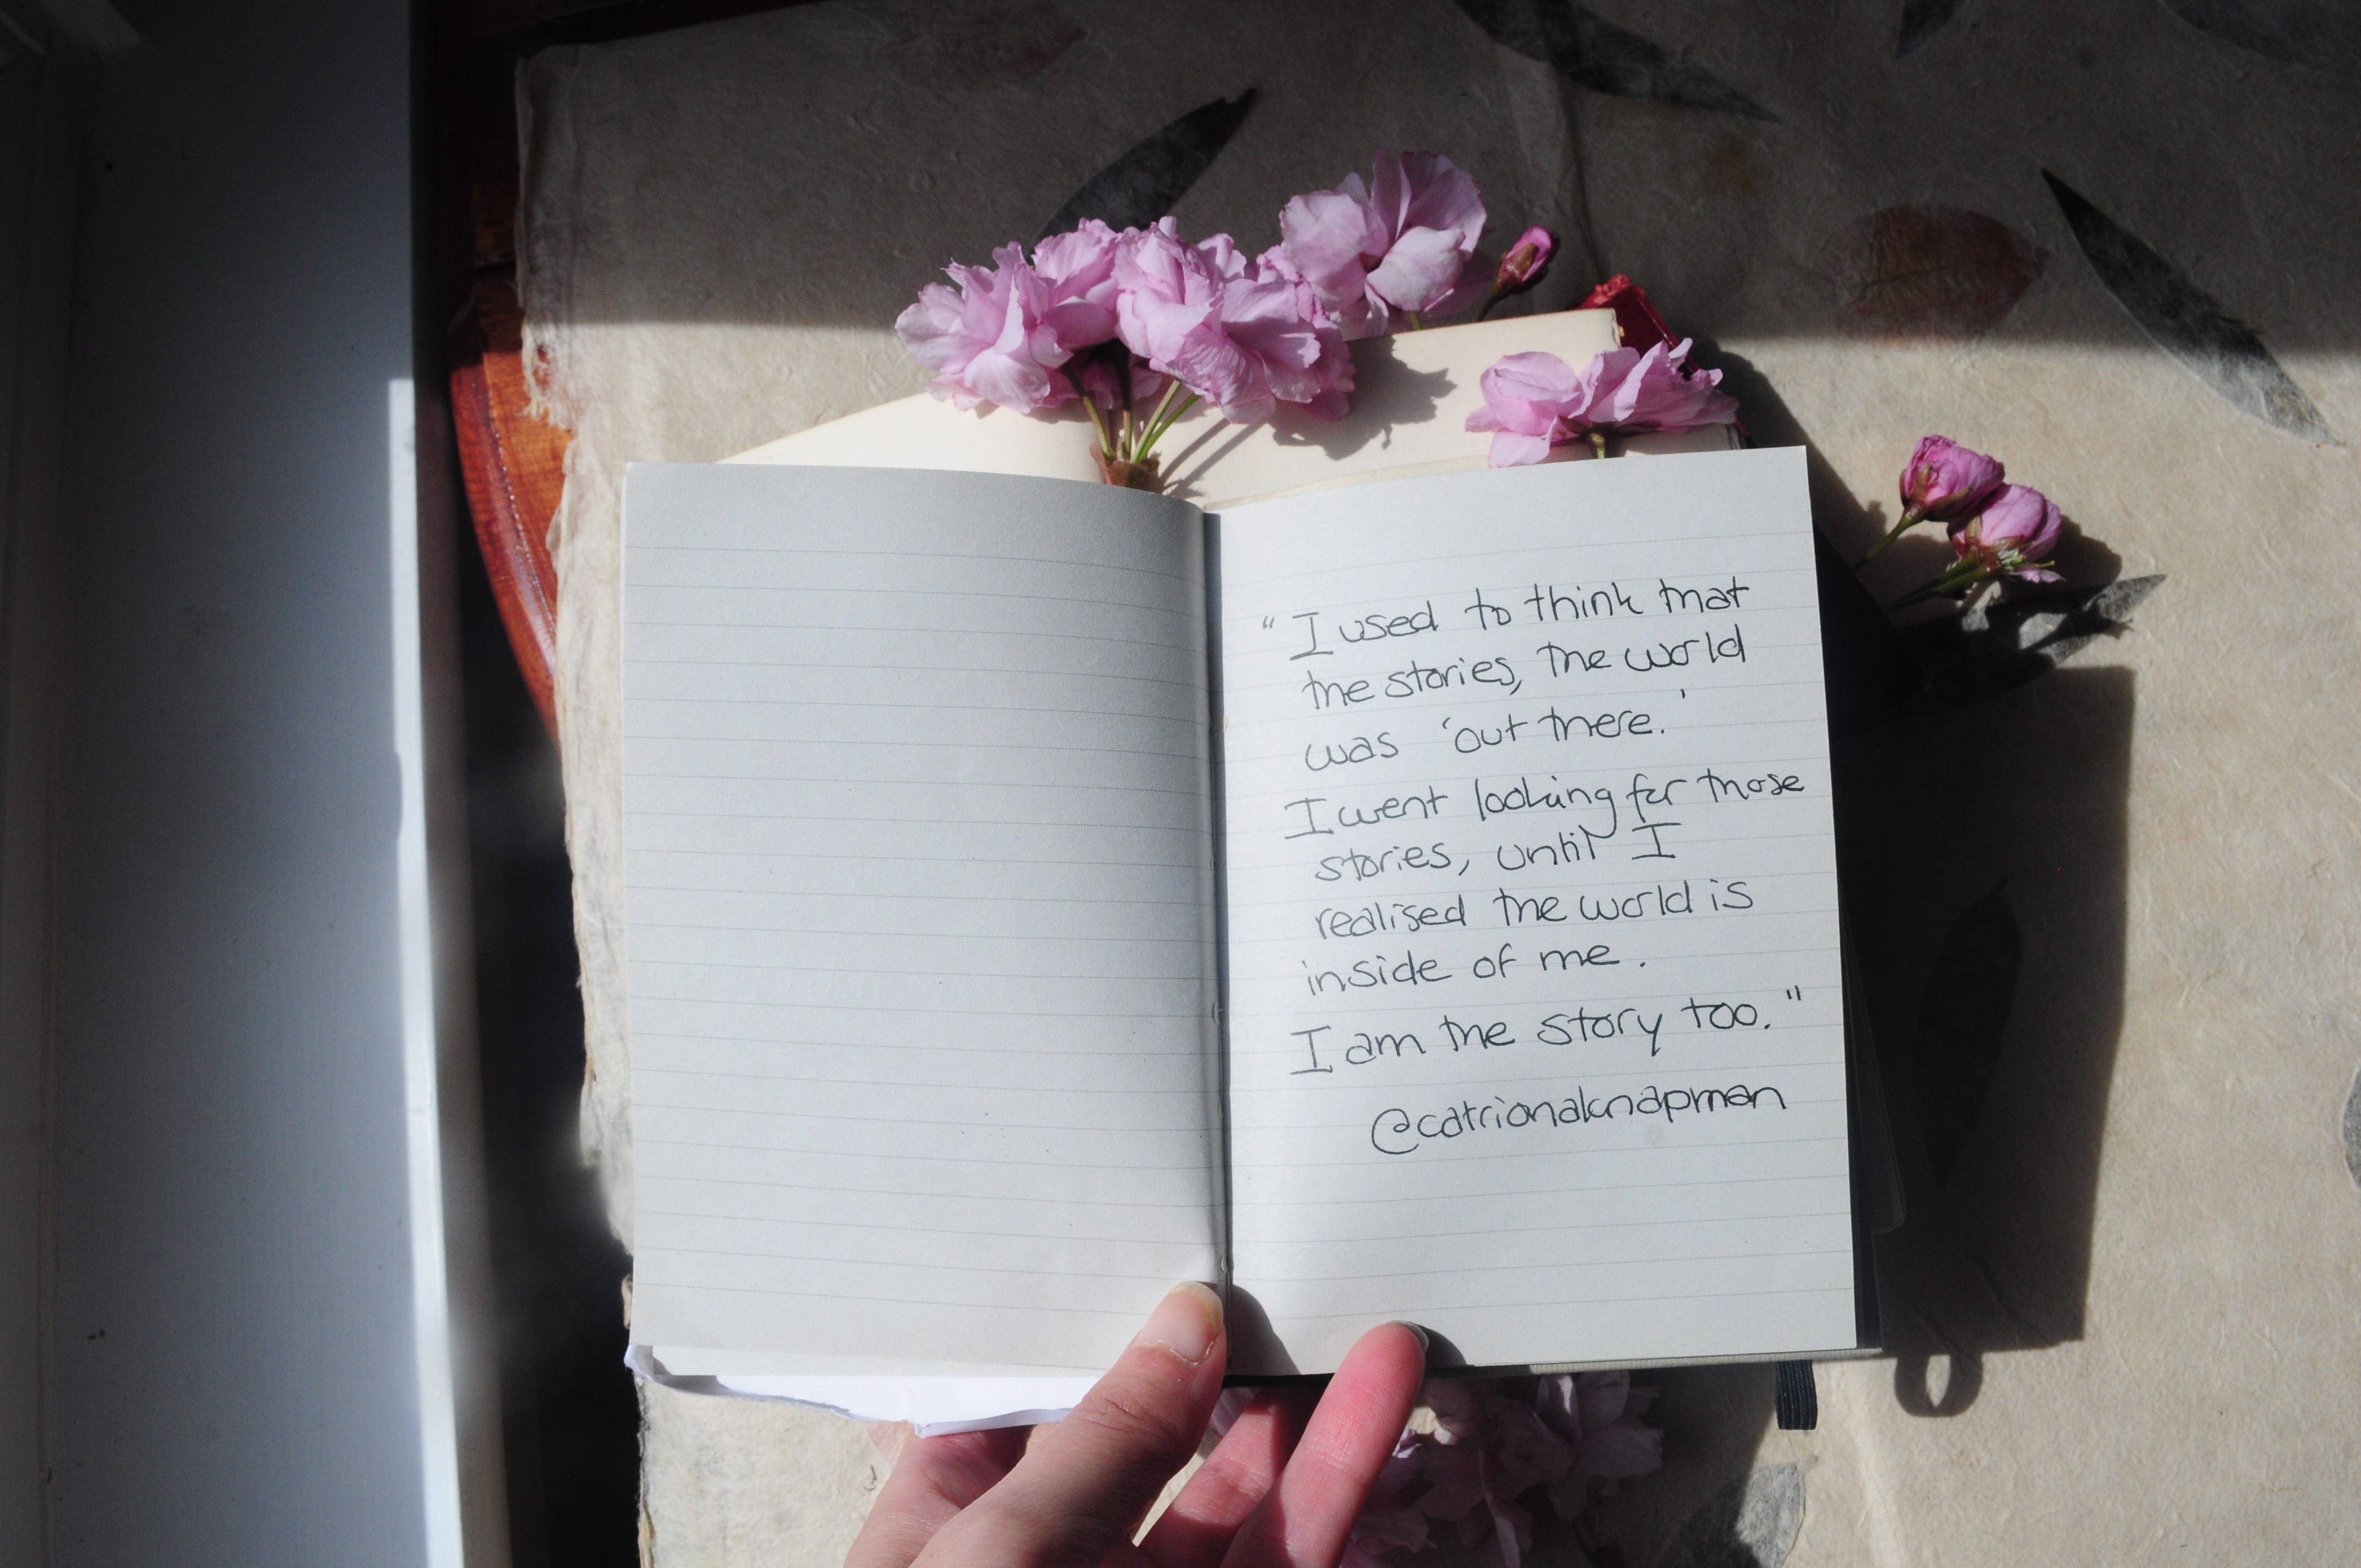 “I used to think that
the stories, the world
was ‘out there.’
I went looking for those
stories, until I
realised the world is
inside of me.
I am the story too.”
@catrionaknapman